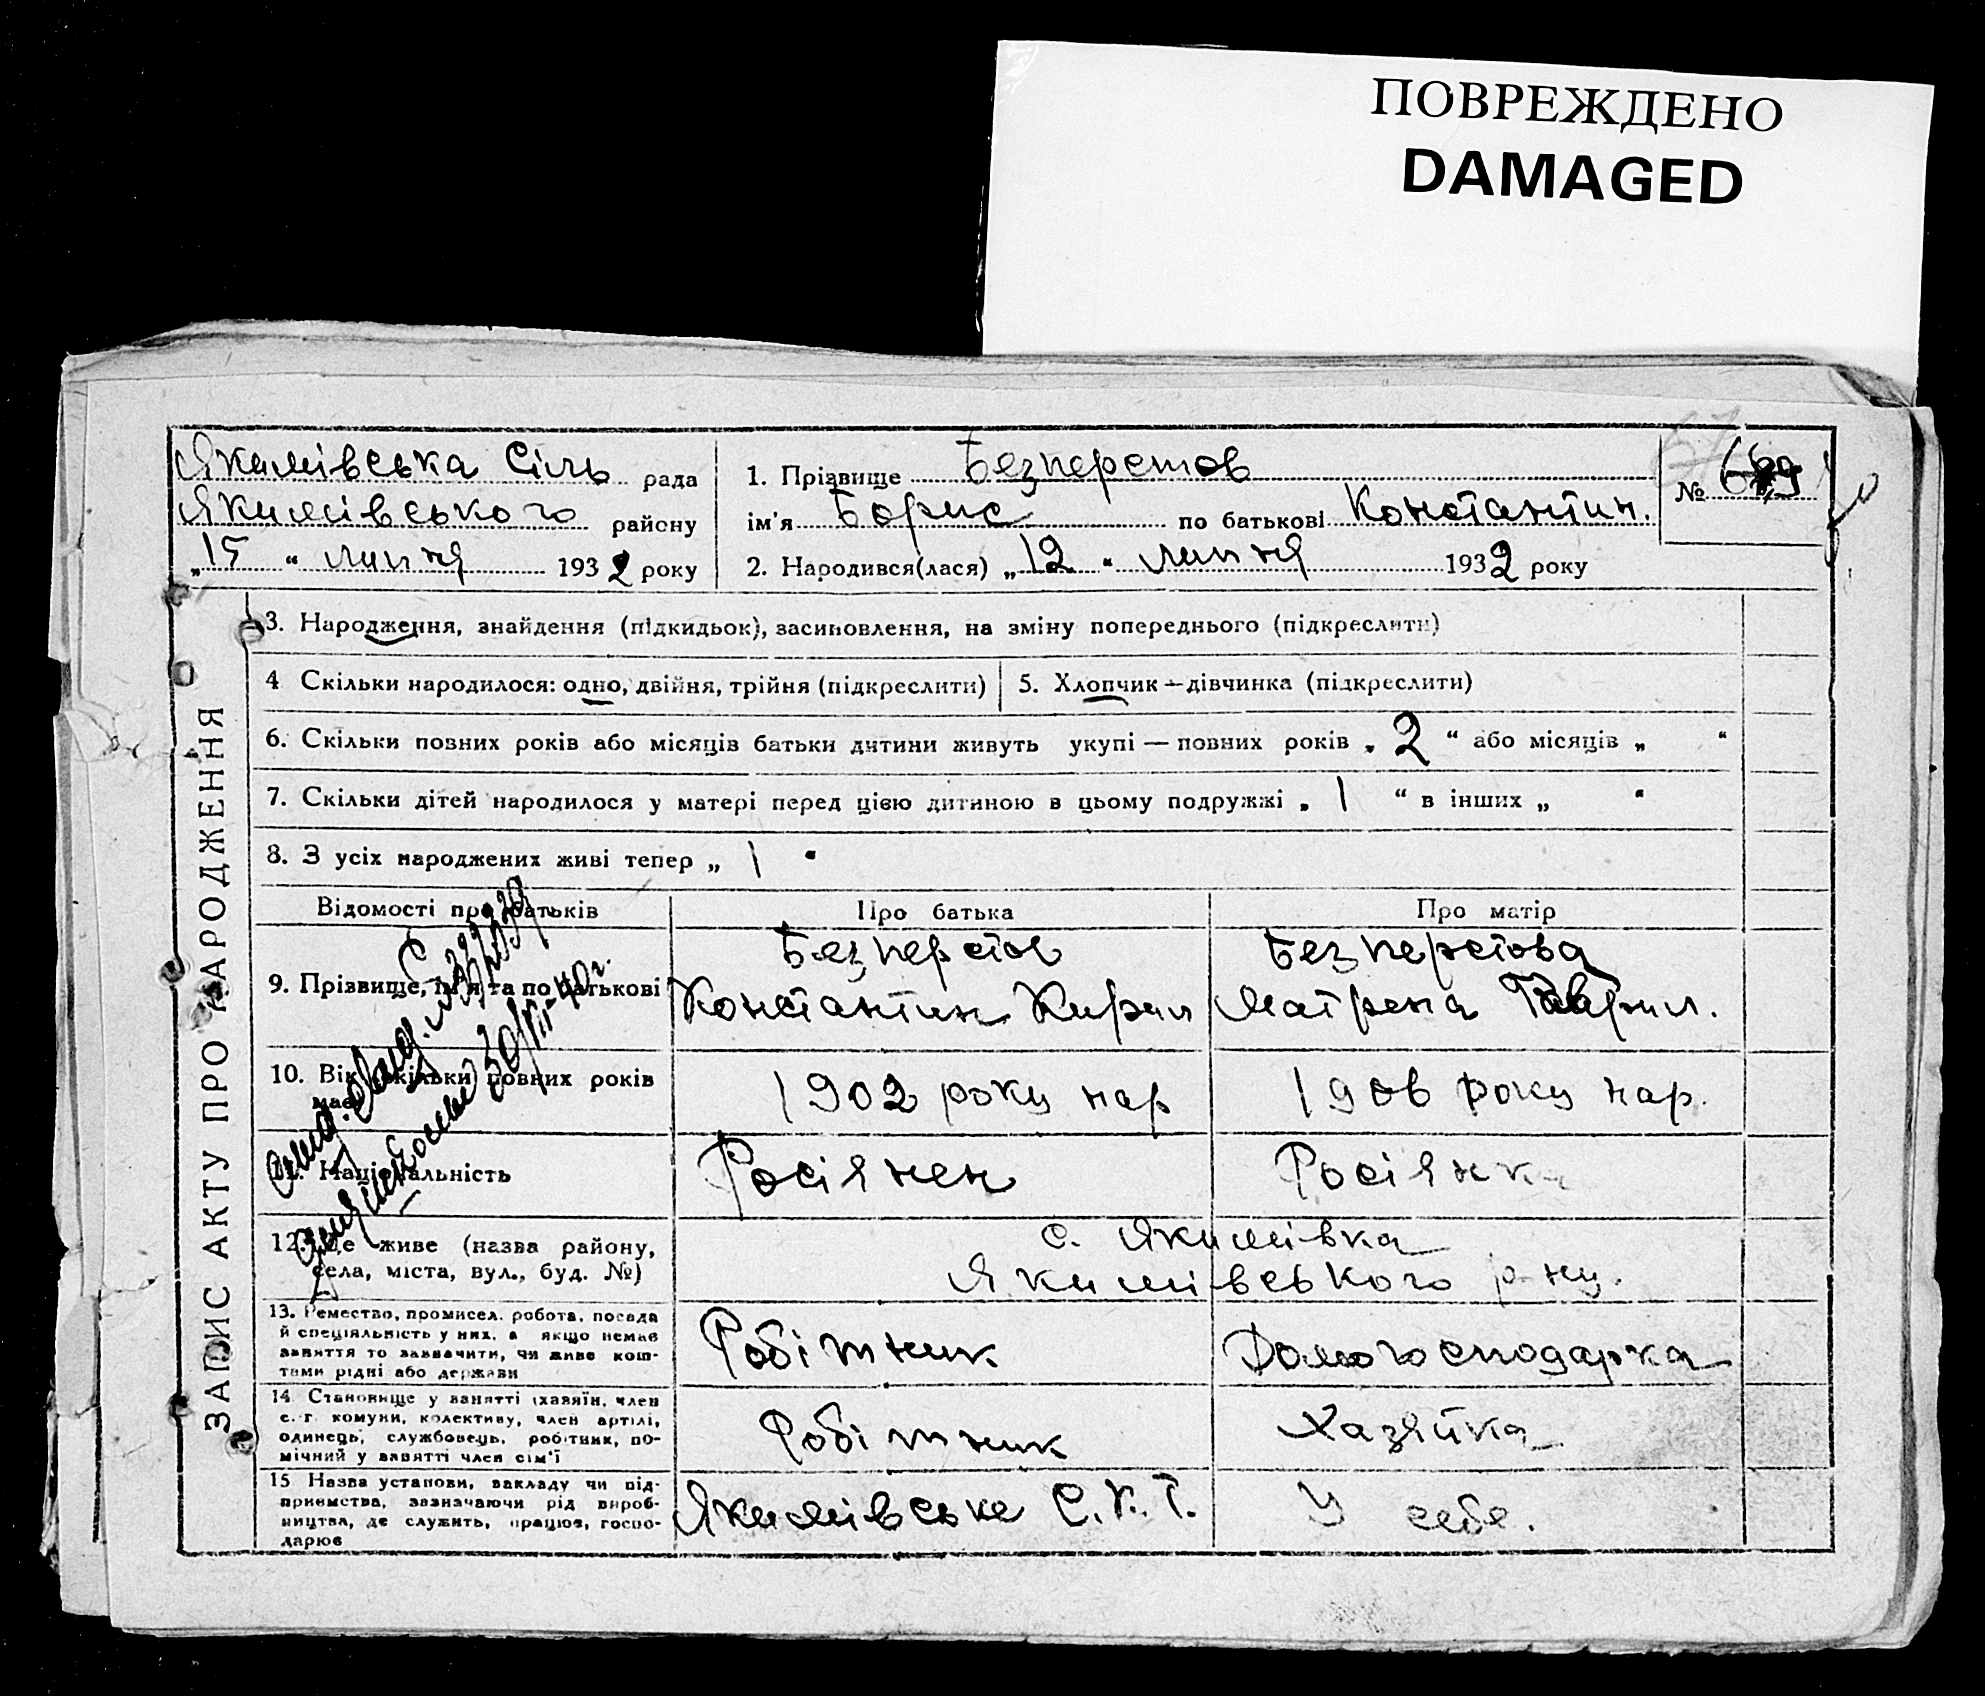 ПОВРЕЖДЕНО
DAMAGED
Якимівська Сіль рада
Якимівського району
„15“ липня 1932 року
1. Прізвище Безперстов
ім'я Борис по батькові Константин.
2. Народився(лася) „12“ липня 1932 року
№
ЗАПИС АКТУ ПРО НАРОДЖЕННЯ
3. Народження, знайдення (підкидьок), засиновлення, на зміну попереднього (підкреслити)
4 Скільки народилося: одно, двійня, трійня (підкреслити)
5. Хлопчик — дівчинка (підкреслити)
6. Скільки повних років або місяців батьки дитини живуть укупі — повних років „2“ або місяців „ “
7. Скільки дітей народилося у матері перед цією дитиною в цьому подружжі „1“ в інших „ “
8. З усіх народжених живі тепер „1“
Відомості про батьків
Про батька
Про матір
9. Прізвище, ім'я та по батькові
Безперстов
Константин Кирил
Безперстова
Матрена Гаврил.
10. Вік скільки повних років
має
1902 року нар
1906 року нар.
11. Національність
Росіянен
Росіянка
12. Де живе (назва району,
села, міста, вул., буд. №)
с. Якимівка
Якимівського р-ну.
13. Ремество, промисел. робота, посада
й спеціяльність у них, а якщо немає
заняття то зазначити, чи живе кош-
тами рідні або держави
Робітник
Домогосподарка
14. Становище у занятті (хазяїн, член
с.-г. комуни, колективу, член артілі,
одинець, службовець, робітник, по-
мічний у занятті член сім'ї
Робітник
Хазяйка
15 Назва установи, закладу чи під-
приємства, зазначаючи рід вироб-
ництва, де служить, працює, госпо-
дарює
Якимівське С.К.Т.
У себе.